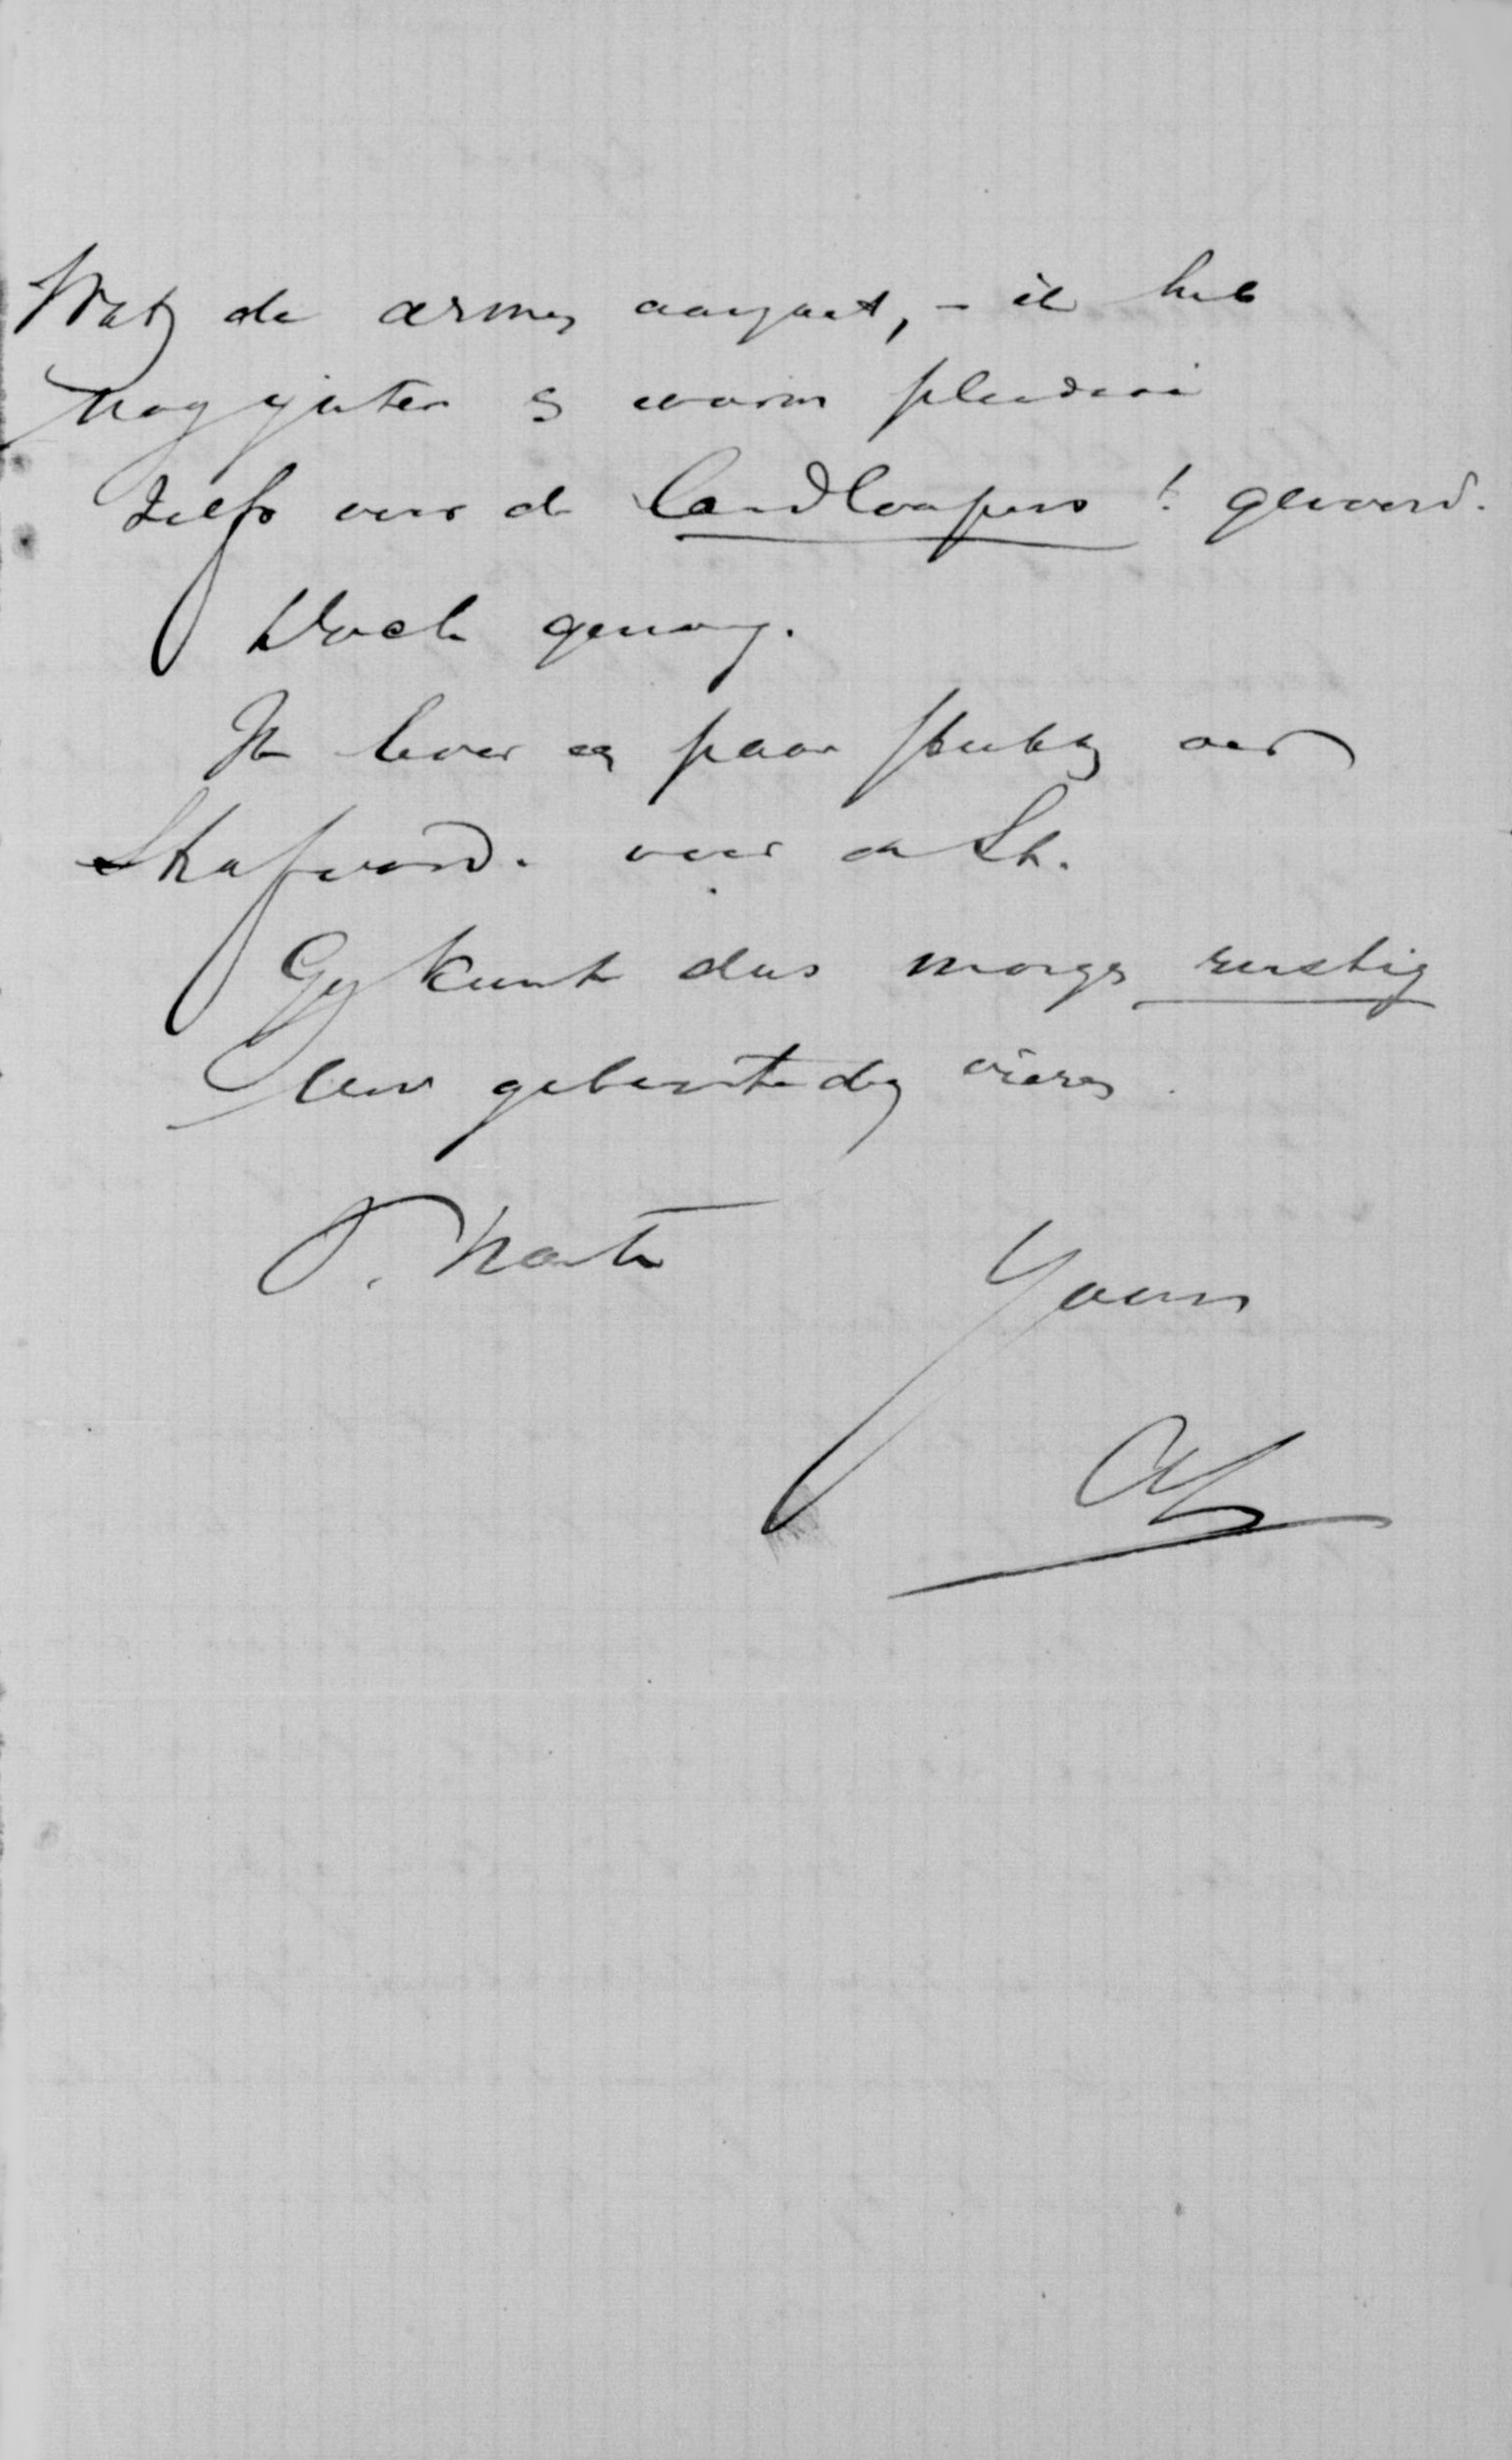 Wat de armen aangaat, - ik heb
nog gister een warm pleidooi
zelfs voor de landloopers! gevoerd.
Doch genoeg.
Ik lever een paar stukken over
Strafvord. voor de St.
Gij kunt dus morgen rustig
Uw geboortedag vieren.
t.
Yours